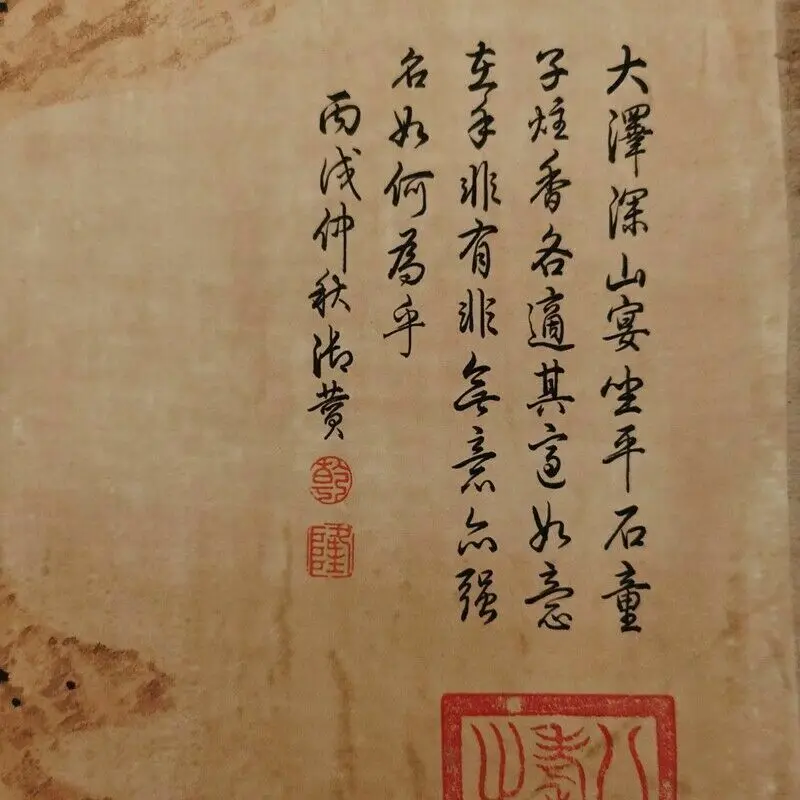 大澤深山宴坐平石童
子炷香各適其適如意
在手非有非無意亦强
名如何為乎
丙戌仲秋御贊
乾
隆